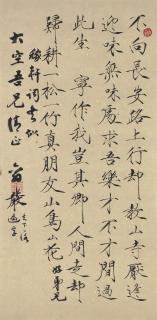 不向長安路上行却教山寺厭逢
迎味無味處求吾樂才不才間過
此生 寧作我豈其卿人間走却
歸耕一松一竹真朋友山鳥山花好弟兄
稼軒詞書似
大空吾兄清正